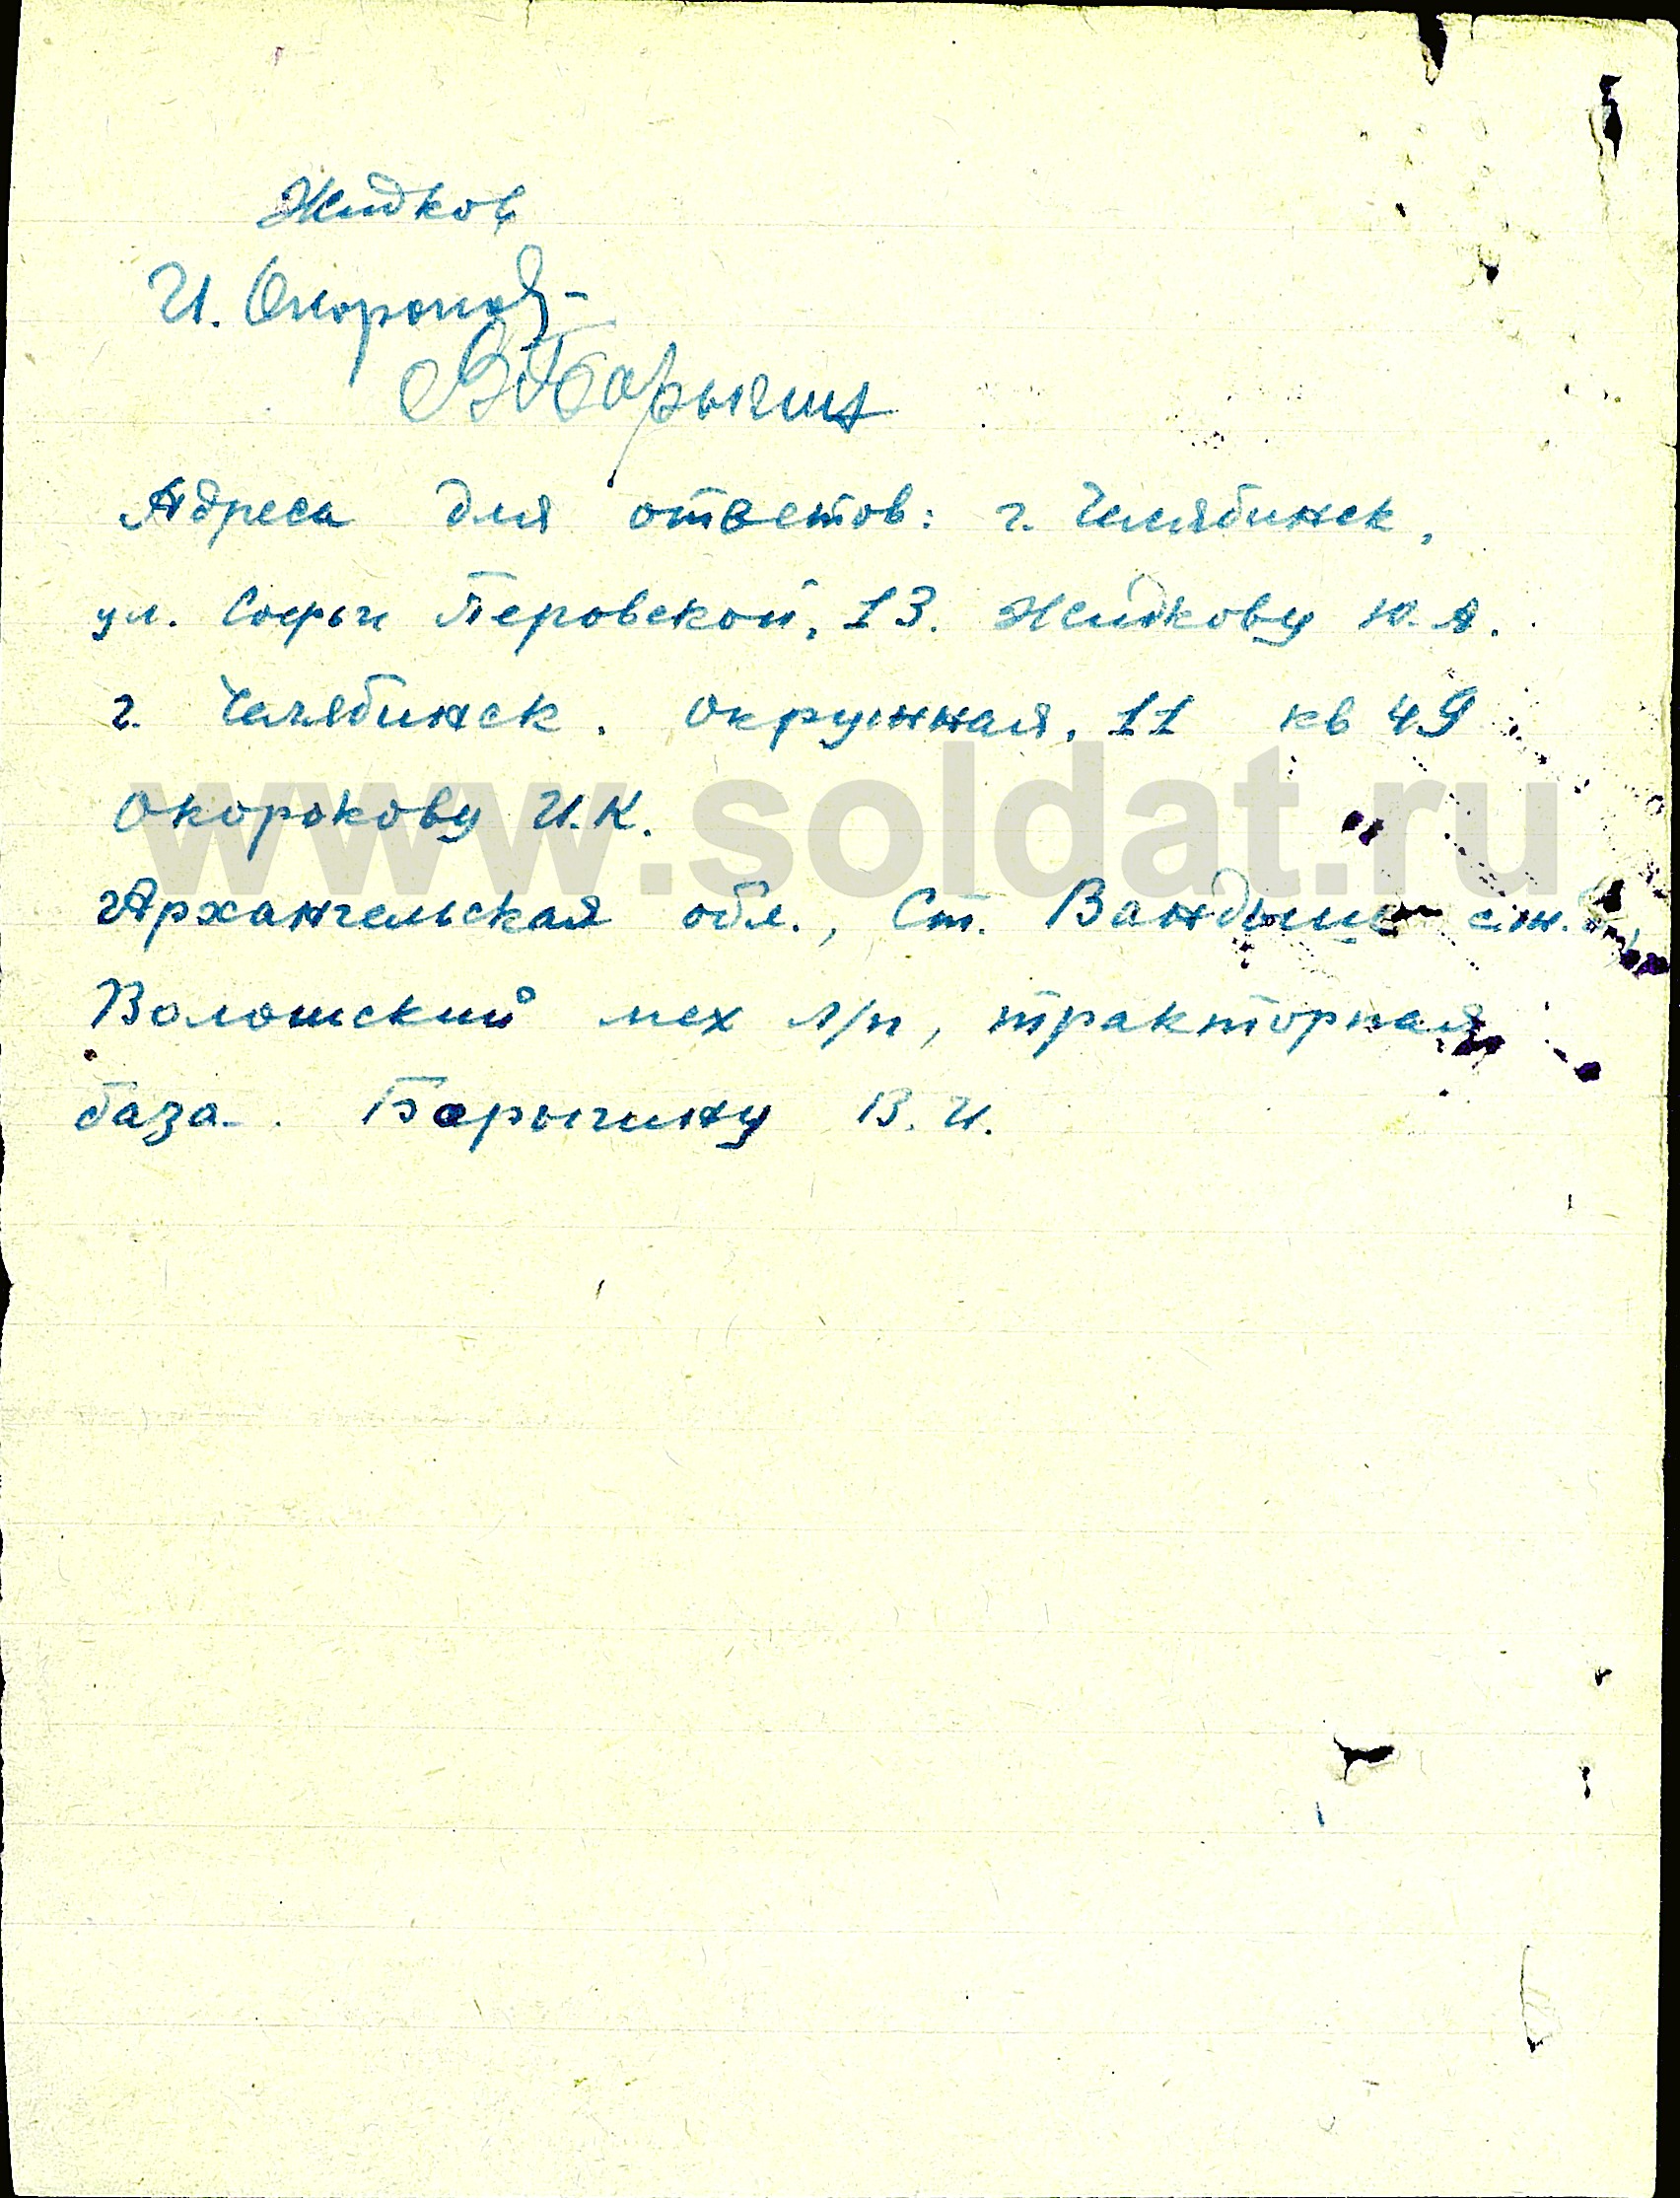 Жидков
И. Окороков
В Барыгин
Адреса для ответов: г. Челябинск,
ул. Софьи Перовской, 13. Жидкову Ю. А.
г. Челябинск. Окружная, 11 кв 49
www.soldat.ru
Окорокову И. К.
Архангельская обл., Ст. Вандыш
Волошский мех л/п, тракторная
база. Барыгину В. И.